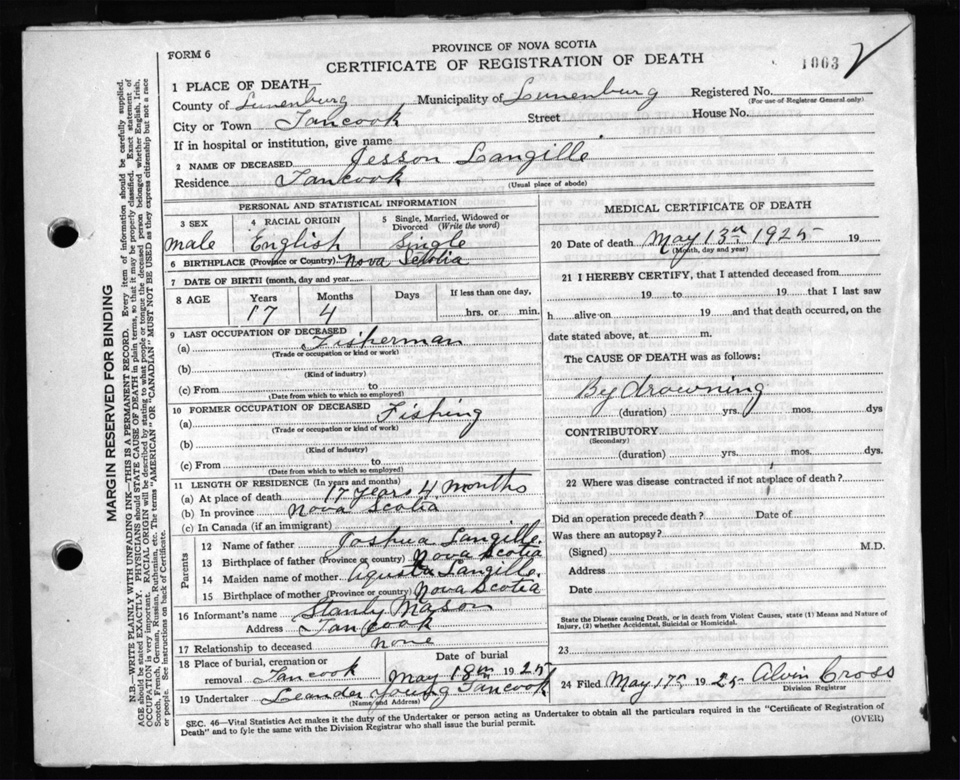 FORM 6
PROVINCE OF NOVA SCOTIA
CERTIFICATE OF REGISTRATION OF DEATH
1063
1 PLACE OF DEATH—
County of Lunenburg Municipality of Lunenburg Registered No.
(For use of Registrar General only)
City or Town Tancook Street House No.
If in hospital or institution, give name
2 NAME OF DECEASED Jesson Langille
Residence Tancook
(Usual place of abode)
PERSONAL AND STATISTICAL INFORMATION
3 SEX 4 RACIAL ORIGIN 5 Single, Married, Widowed or Divorced (Write the word)
Male English Single
6 BIRTHPLACE (Province or Country) Nova Scotia
7 DATE OF BIRTH (month, day and year)
8 AGE Years Months Days If less than one day,
17 4 hrs. or min.
9 LAST OCCUPATION OF DECEASED
(a) Fisherman
(Trade or occupation or kind or work)
(b)
(Kind of industry)
(c) From to
(Date from which to which so employed)
10 FORMER OCCUPATION OF DECEASED
(a) Fishing
(Trade or occupation or kind of work)
(b)
(Kind of industry)
(c) From to
(Date from which to which so employed)
11 LENGTH OF RESIDENCE (In years and months)
(a) At place of death 17 years 4 months
(b) In province Nova Scotia
(c) In Canada (if an immigrant)
Parents
12 Name of father Joshua Langille.
13 Birthplace of father (Province or country) Nova Scotia
14 Maiden name of mother Agusta Langille.
15 Birthplace of mother (Province or country) Nova Scotia
16 Informant's name Stanly Mason
Address Tancook
17 Relationship to deceased none
18 Place of burial, cremation or removal Tancook
Date of burial
May 18th 1925
19 Undertaker Leander Young Tancook
(Name and Address)
MEDICAL CERTIFICATE OF DEATH
20 Date of death May 13th 1925 19
(Month, day and year)
21 I HEREBY CERTIFY, that I attended deceased from
19 to 19 that I last saw
h alive on 19 and that death occurred, on the
date stated above, at m.
The CAUSE OF DEATH was as follows:
By drowning
(duration) yrs. mos. dys
CONTRIBUTORY
(Secondary)
(duration) yrs. mos. dys.
22 Where was disease contracted if not at place of death?
Did an operation precede death? Date of
Was there an autopsy?
(Signed) M.D.
Address
Date
State the Disease causing Death, or in Death from Violent Causes, state (1) Means and Nature of
Injury, (2) whether Accidental, Suicidal or Homicidal.
23
24 Filed May 17th 1925 Alvin Cross
Division Registrar
SEC. 46—Vital Statistics Act makes it the duty of the Undertaker or person acting as Undertaker to obtain all the particulars required in the "Certificate of Registration of
Death" and to fyle the same with the Division Registrar who shall issue the burial permit.
(OVER)
MARGIN RESERVED FOR BINDING
N.B.—WRITE PLAINLY WITH UNFADING INK—THIS IS A PERMANENT RECORD. Every item of information should be carefully supplied.
AGE should be stated EXACTLY. PHYSICIANS should STATE CAUSE OF DEATH in plain terms, so that it may be properly classified. Exact statement of
OCCUPATION is very important. RACIAL ORIGIN will be described by stating to what people or tongue the deceased person belonged whether English, Irish,
Scotch, French, German, Russian, Ruthenian, etc. The terms "AMERICAN" or "CANADIAN" MUST NOT BE USED as they express citizenship but not a race
or people. See instructions on back of Certificate.